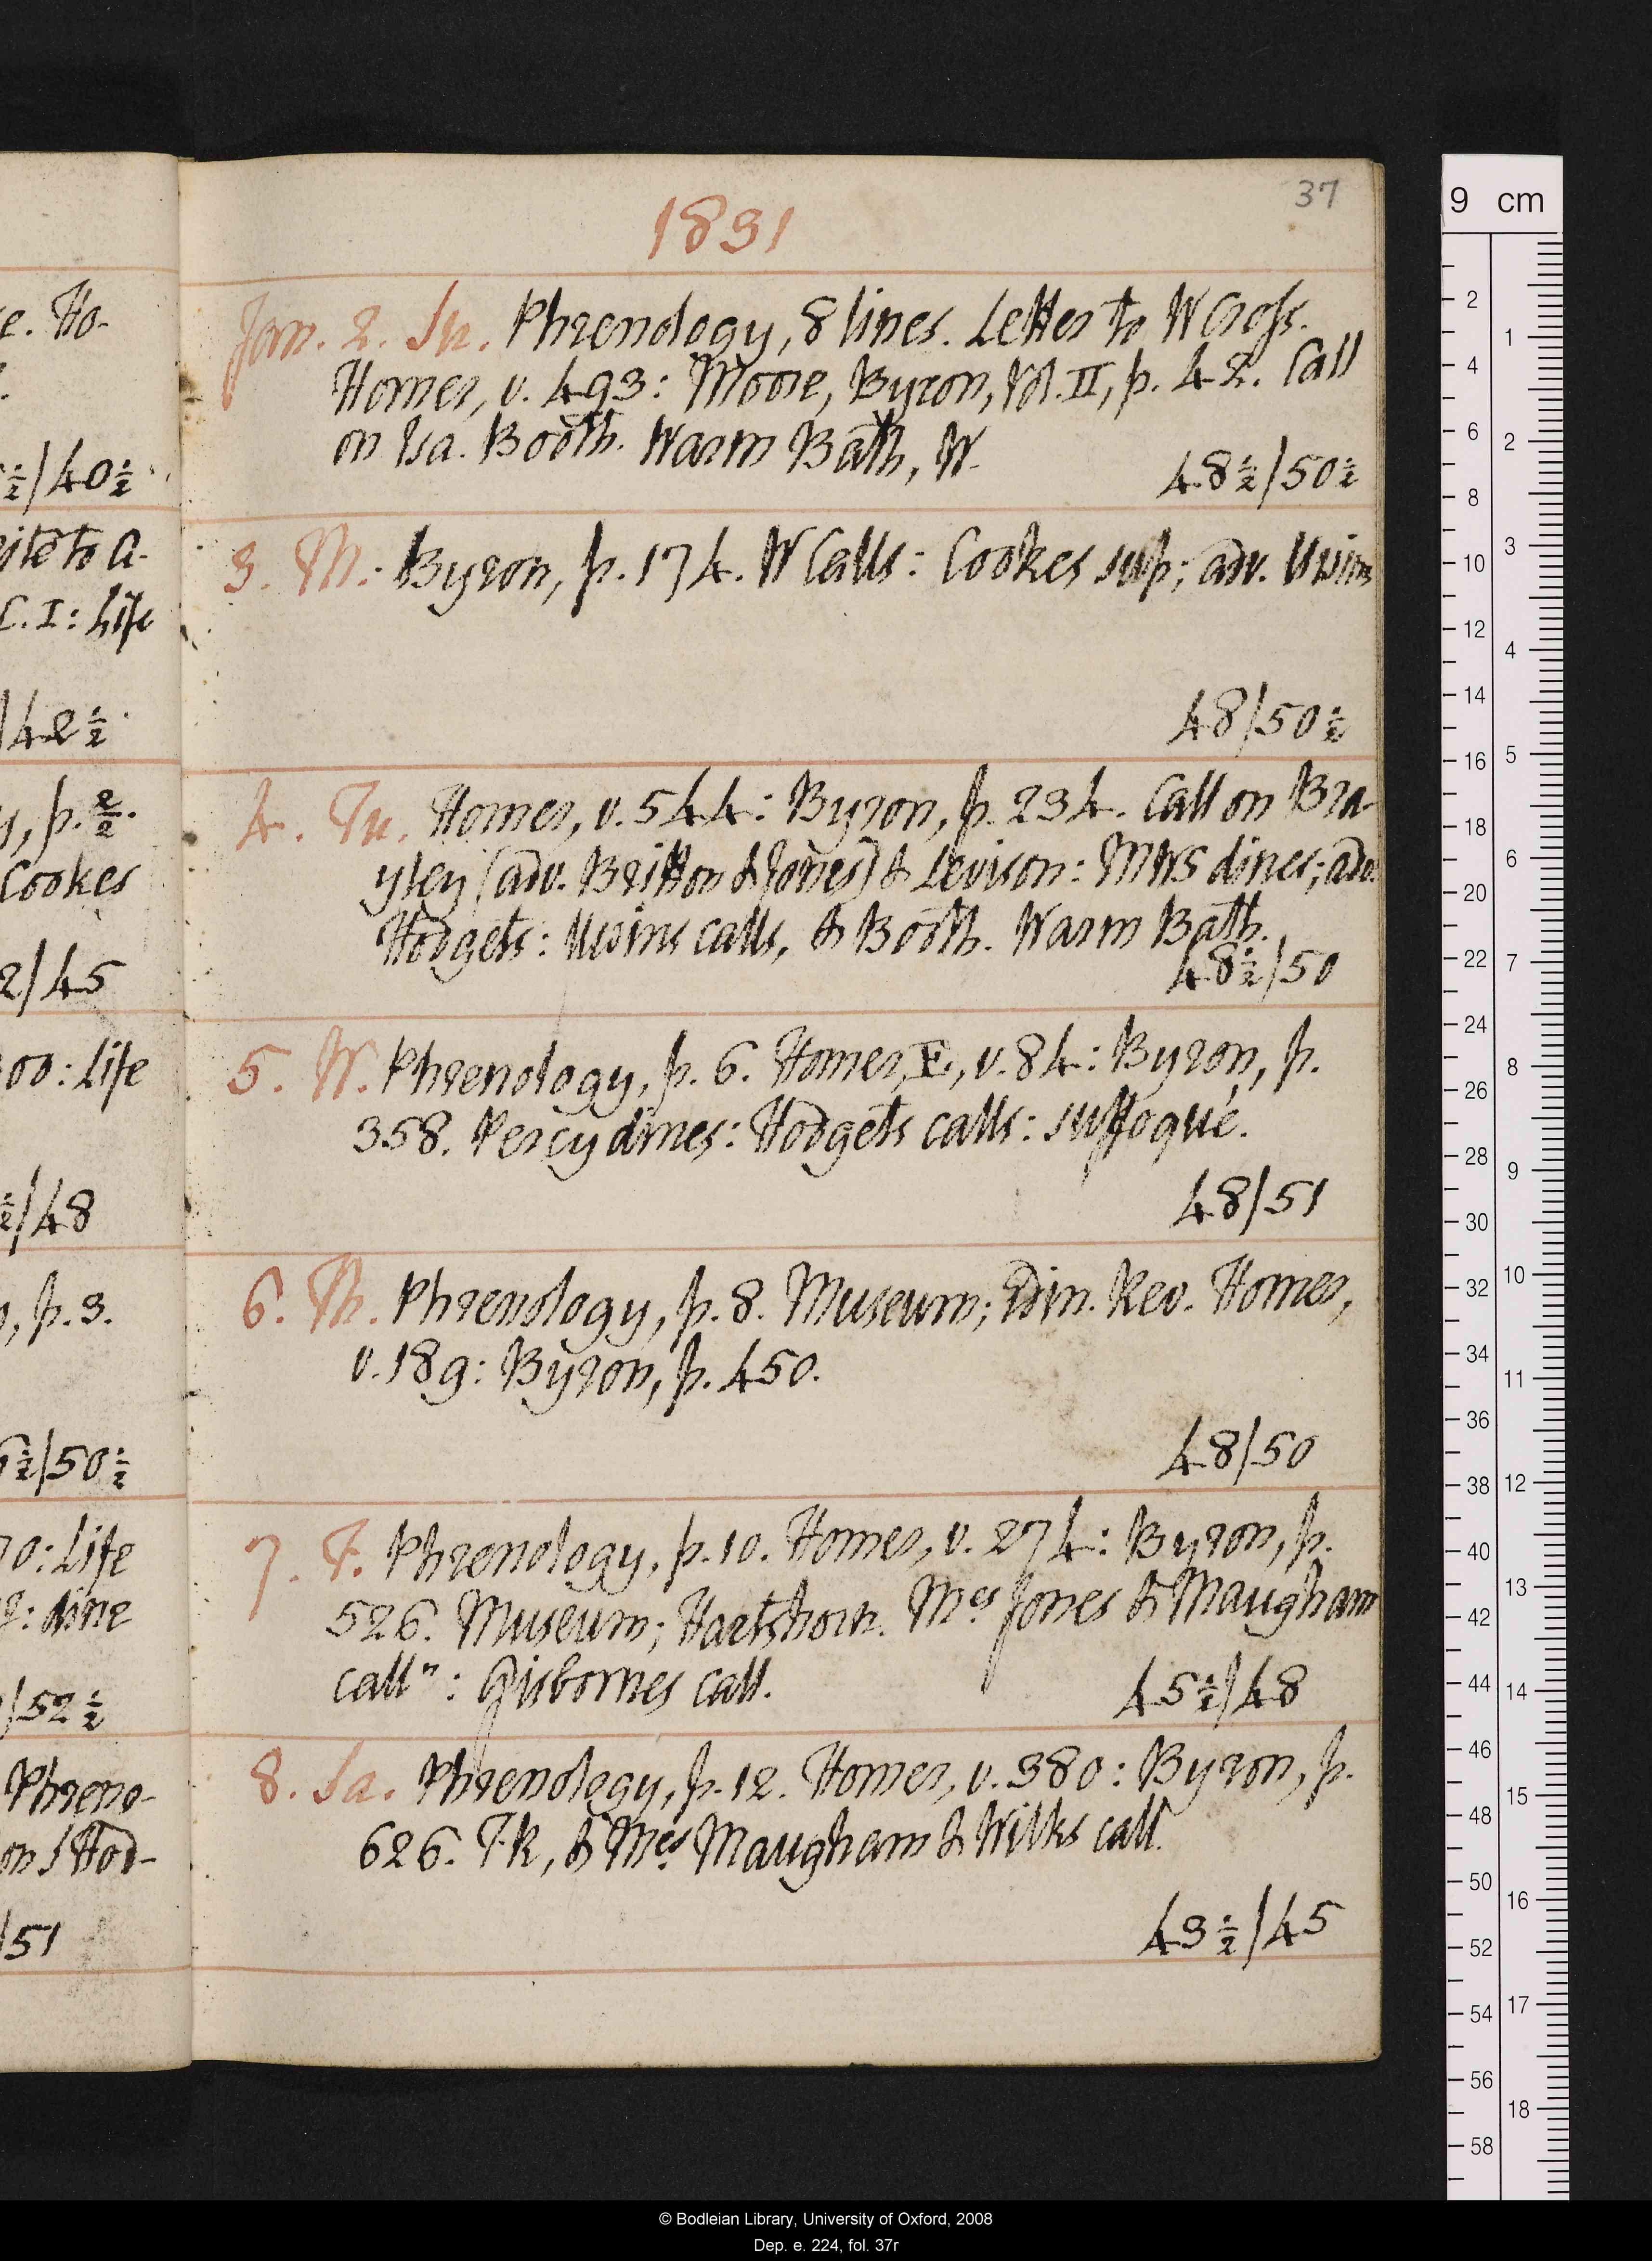 37
1831
Jan. 2. Su. Phrenology, 8 lines. Letter to W Cross.
Homer, v. 493: Moore, Byron, Vol. II, p. 42. Call
on Isa. Booth. Warm Bath, W.
48½/50½
3. M. Byron, p. 174. W Calls: Cookes sup; adv. Uwins
48/50½
4. Tu. Homer, v. 544: Byron, p. 234. Call on Bra-
yley (adv. Britton & Jones) & Levison: MWS dines; adv.
Hodgets: Uwins calls, & Booth. Warm Bath.
48½/50
5. W. Phrenology, p. 6. Homer, E, v. 84: Byron, p.
358. Percy dines: Hodgets calls: suffoqué.
48/51
6. Th. Phrenology, p. 8. Museum; Edin. Rev. Homer,
v. 189: Byron, p. 450.
48/50
7. F. Phrenology, p. 10. Homer, v. 274: Byron, p.
526. Museum; Hartshorn. Mrs Jones & Maugham
calln: Gisbornes call.
45½/48
8. Sa. Phrenology, p. 12. Homer, v. 380: Byron, p.
626. T.R, & Mrs Maugham & Wilks call.
43½/45
e. Ho-
½/40½
C. I: Life
/42½
Cookes
2/45
00: Life
½/48
, p. 3.
6½/50½
70: Life
: dine
/52½
Phreno-
on S Hod-
/51
9 cm
© Bodleian Library, University of Oxford, 2008
Dep. e. 224, fol. 37r